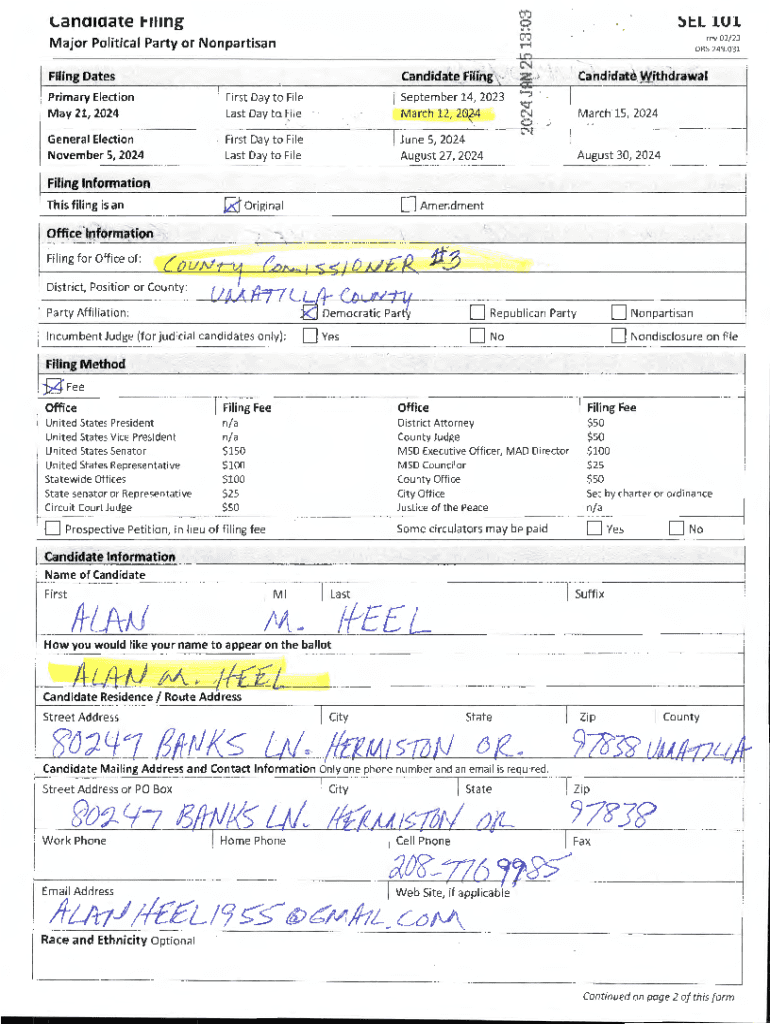 Candidate Filing SEL 101
Major Political Party or Nonpartisan rev 02/23
ORS 249.031
2024 JAN 25 13:03
Filing Dates Candidate Filing Candidate Withdrawal
Primary Election First Day to File September 14, 2023
May 21, 2024 Last Day to File March 12, 2024 March 15, 2024
General Election First Day to File June 5, 2024
November 5, 2024 Last Day to File August 27, 2024 August 30, 2024
Filing Information
This filing is an Original Amendment
Office Information
Filing for Office of: COUNTY COMISSIONER #3
District, Position or County: UMATILLA COUNTY
Party Affiliation: Democratic Party Republican Party Nonpartisan
Incumbent Judge (for judicial candidates only): Yes No Nondisclosure on file
Filing Method
Fee
Office Filing Fee Office Filing Fee
United States President n/a District Attorney $50
United States Vice President n/a County Judge $50
United States Senator $150 MSD Executive Officer, MAD Director $100
United States Representative $100 MSD Councilor $25
Statewide Offices $100 County Office $50
State senator or Representative $25 City Office Set by charter or ordinance
Circuit Court Judge $50 Justice of the Peace n/a
Prospective Petition, in lieu of filing fee Some circulators may be paid Yes No
Candidate Information
Name of Candidate
First MI Last Suffix
ALAN M. HEEL
How you would like your name to appear on the ballot
ALAN M. HEEL
Candidate Residence / Route Address
Street Address City State Zip County
80247 BANKS LN. HERMISTON OR. 97838 UMATILLA
Candidate Mailing Address and Contact Information Only one phone number and an email is required.
Street Address or PO Box City State Zip
80247 BANKS LN. HERMISTON OR 97838
Work Phone Home Phone Cell Phone Fax
208-776 9985
Email Address Web Site, if applicable
ALANHEEL1955@GMAIL.COM
Race and Ethnicity Optional
Continued on page 2 of this form